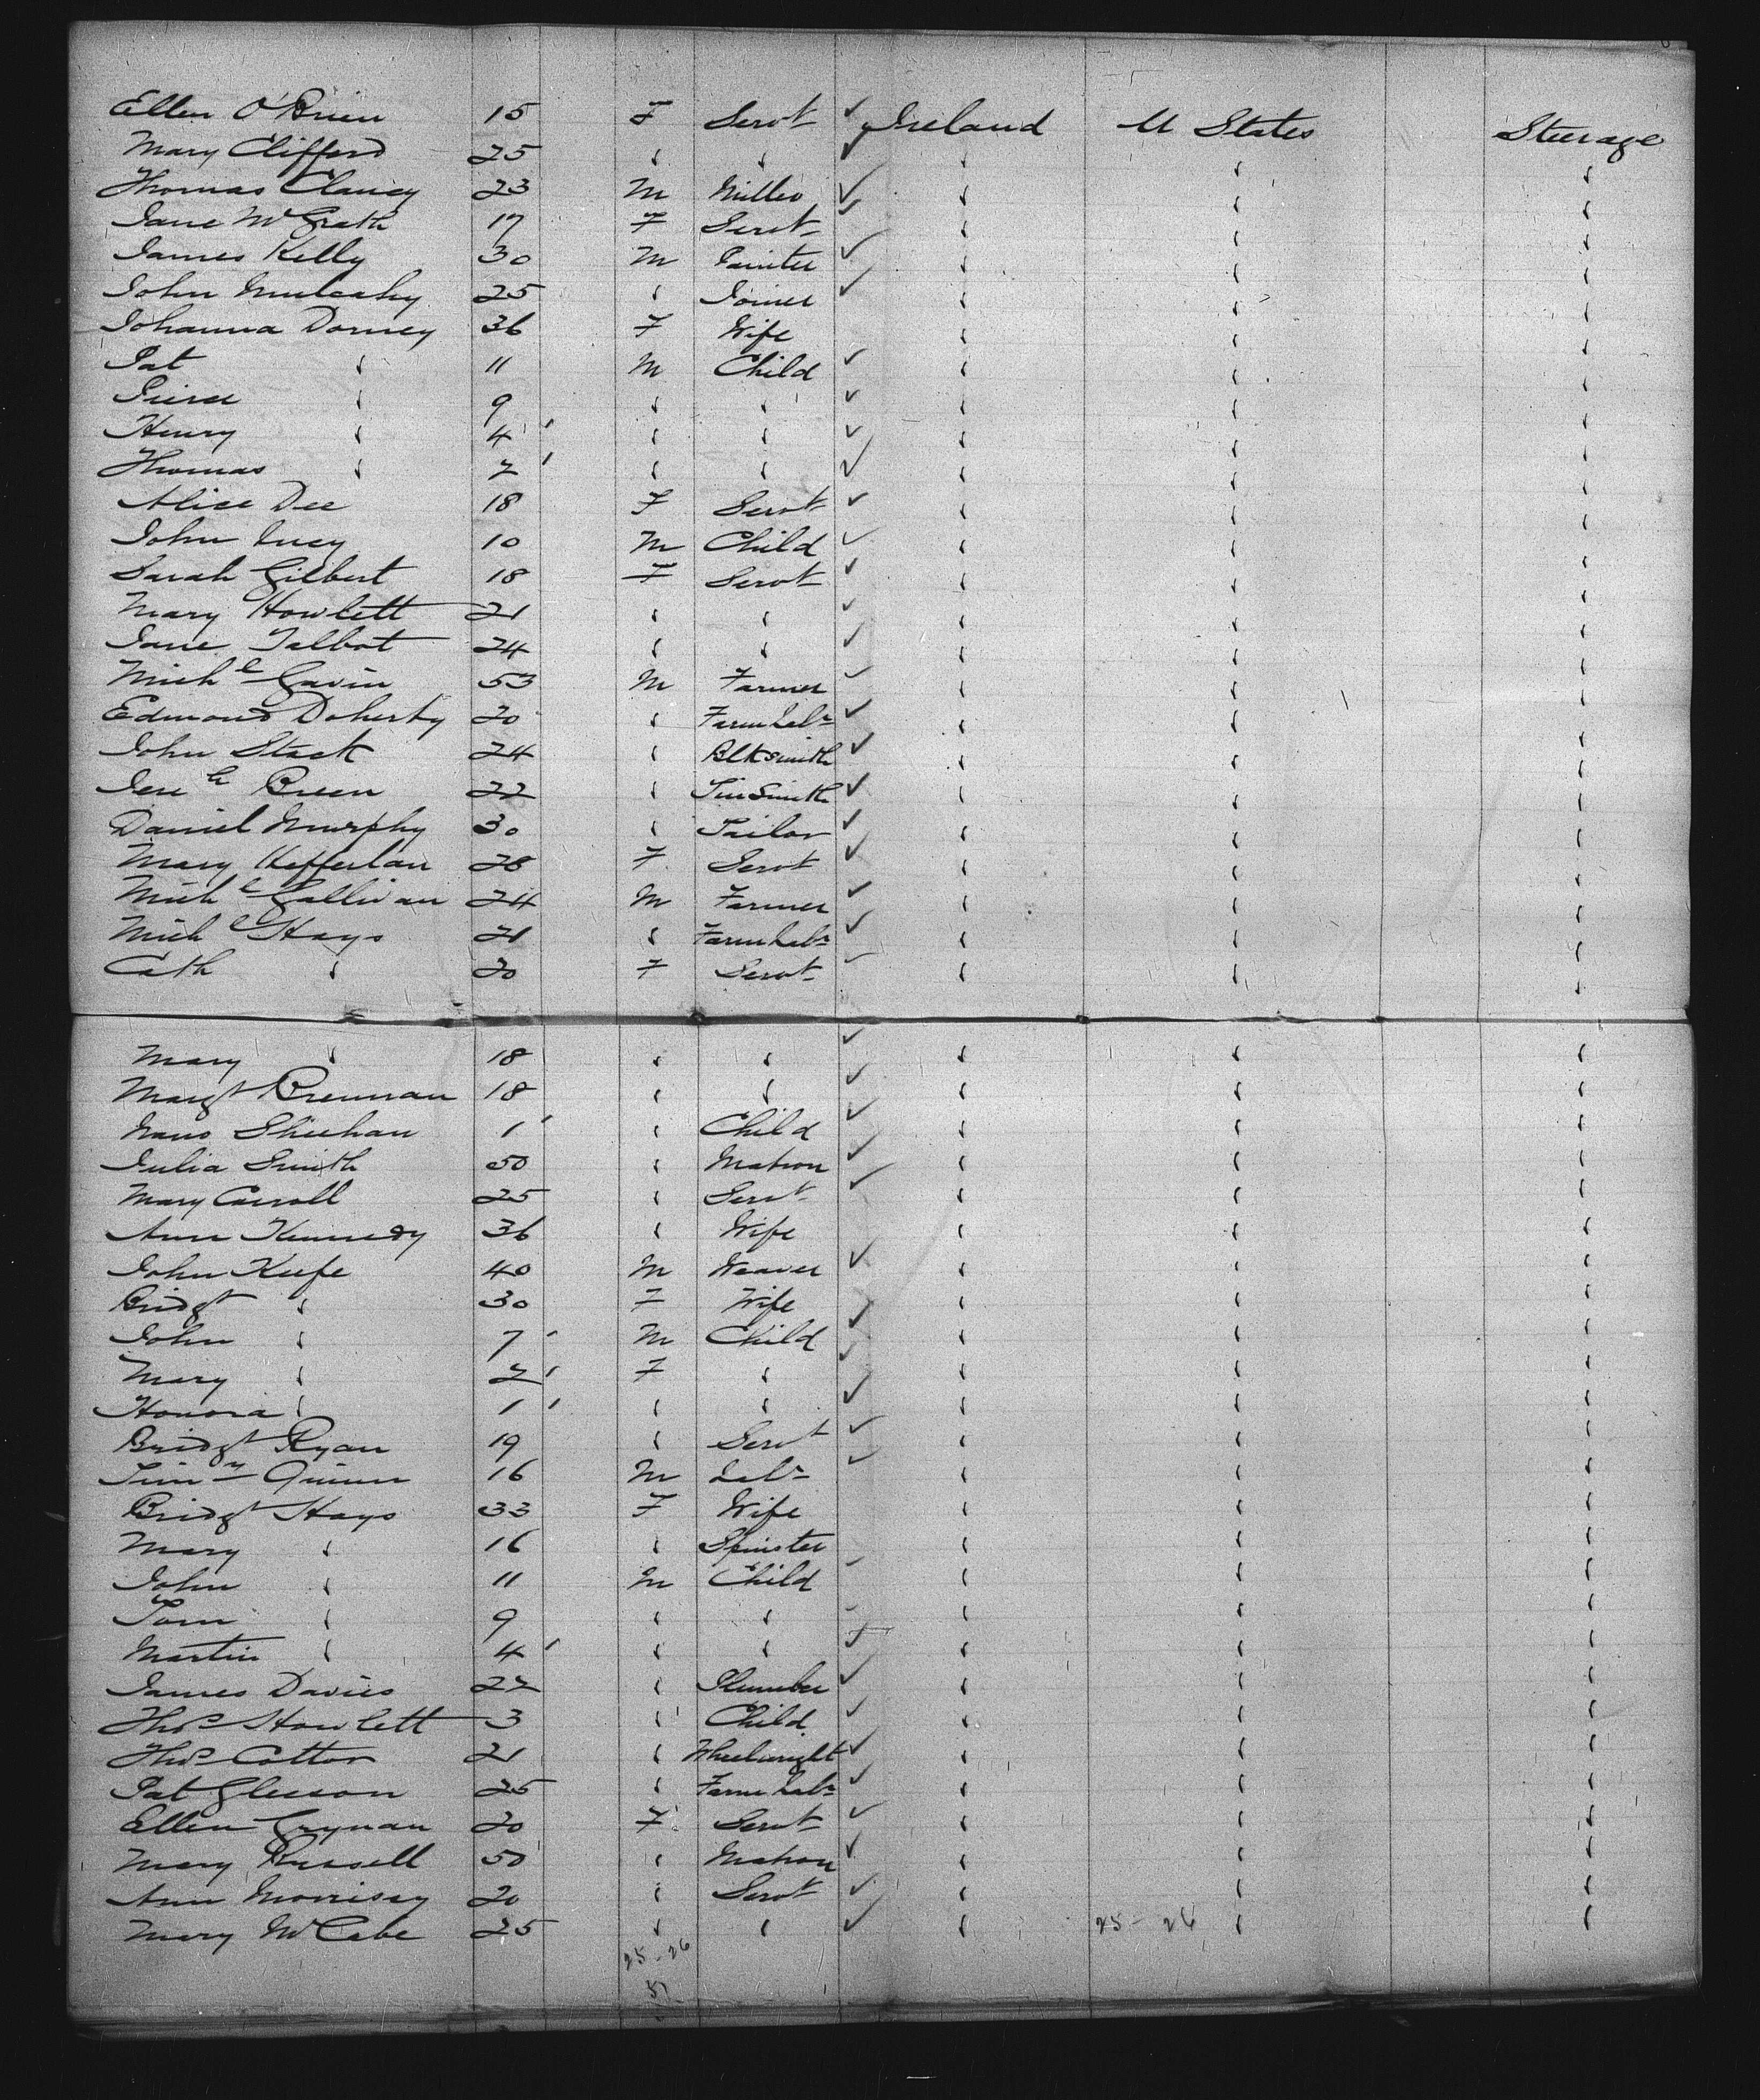 Ellen O'Brien 15 F Servt ✓ Ireland U States Steerage
Mary Clifford 25 " " ✓ " " "
Thomas Clancy 23 M Miller ✓ " " "
Jane McGrath 17 F Servt ✓ " " "
James Kelly 30 M Painter ✓ " " "
John Mulcahy 25 " Joiner ✓ " " "
Johanna Dorney 36 F Wife " " "
Pat " 11 M Child ✓ " " "
Pierce " 9 " " ✓ " " "
Henry " 4 " " ✓ " " "
Thomas " 2 " " ✓ " " "
Alice Dee 18 F Servt ✓ " " "
John Lucy 10 M Child ✓ " " "
Sarah Gilbert 18 F Servt ✓ " " "
Mary Howlett 21 " " ✓ " " "
Jane Talbot 24 " " ✓ " " "
Michl Gavin 53 M Farmer ✓ " " "
Edmond Doherty 20 " Farm Labr ✓ " " "
John Stack 24 " Blksmith ✓ " " "
Jereh Breen 22 " Tinsmith ✓ " " "
Daniel Murphy 30 " Tailor ✓ " " "
Mary Hefferlan 28 F Servt ✓ " " "
Michl Gallivan 24 M Farmer ✓ " " "
Michl Hays 21 " Farm Labr ✓ " " "
Cath " 20 F Servt ✓ " " "
Mary " 18 " " ✓ " " "
Margt Brennan 18 " " ✓ " " "
Sheehan 1 " Child ✓ " " "
Julia Smith 50 " Matron ✓ " " "
Mary Carroll 25 " Servt ✓ " " "
Ann Kennedy 36 " Wife " " "
John Keefe 40 M Weaver ✓ " " "
Bridgt " 30 F Wife ✓ " " "
John " 7 M Child ✓ " " "
Mary " 2 F " ✓ " " "
Honora " 1 " " ✓ " " "
Bridgt Ryan 19 " Servt ✓ " " "
Timy Quinn 16 M Labr ✓ " " "
Bridgt Hays 33 F Wife " " "
Mary " 16 " Spinster " " "
John " 11 M Child ✓ " " "
Tom " 9 " " ✓ " " "
Martin " 4 " " ✓ " " "
James Davies 22 " Plumber ✓ " " "
Thos Howlett 3 " Child ✓ " " "
Thos Cotter 21 " Wheelwright ✓ " " "
Pat Gleeson 25 " Farm Labr ✓ " " "
Ellen 20 F Servt ✓ " " "
Mary Russell 50 " Matron ✓ " " "
Ann Morrisey 20 " Servt ✓ " " "
Mary McCabe 25 " " ✓ " 25 - 26 " "
25 - 26
51